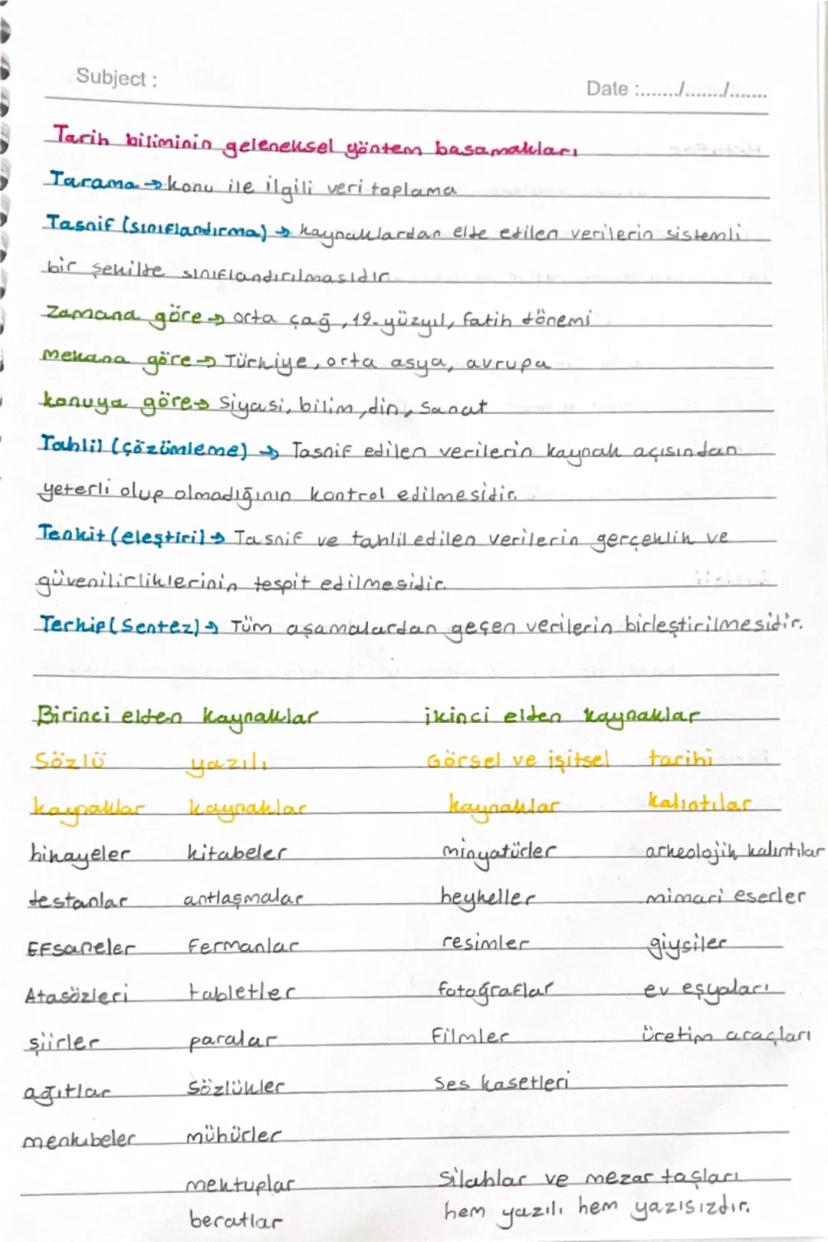 Subject :
Date :......./......./.......
Tarih biliminin geleneksel yöntem basamakları
Tarama → konu ile ilgili veri toplama
Tasnif (sınıflandırma) → kaynaklardan elde edilen verilerin sistemli
bir şekilde sınıflandırılmasıdır
Zamana göre → orta çağ, 19. yüzyıl, fatih dönemi
mekana göre → Türkiye, orta asya, avrupa
konuya göre → Siyasi, bilim, din, Sanat
Tahlil (çözümleme) → Tasnif edilen verilerin kaynak açısından
yeterli olup olmadığının kontrol edilmesidir.
Tenkit (eleştiri) → Tasnif ve tahlil edilen verilerin gerçeklik ve
güvenilirliklerinin tespit edilmesidir.
Terkip (Sentez) → Tüm aşamalardan geçen verilerin birleştirilmesidir.
Birinci elden kaynaklar ikinci elden kaynaklar
Sözlü yazılı Görsel ve işitsel tarihi
kaynaklar kaynaklar kaynaklar kalıntılar
hikayeler kitabeler minyatürler arkeolojik kalıntılar
destanlar antlaşmalar heykeller mimari eserler
Efsaneler Fermanlar resimler giysiler
Atasözleri tabletler fotoğraflar ev eşyaları
şiirler paralar Filmler üretim araçları
ağıtlar Sözlükler Ses kasetleri
menkıbeler mühürler
mektuplar Silahlar ve mezar taşları
beratlar hem yazılı hem yazısızdır.